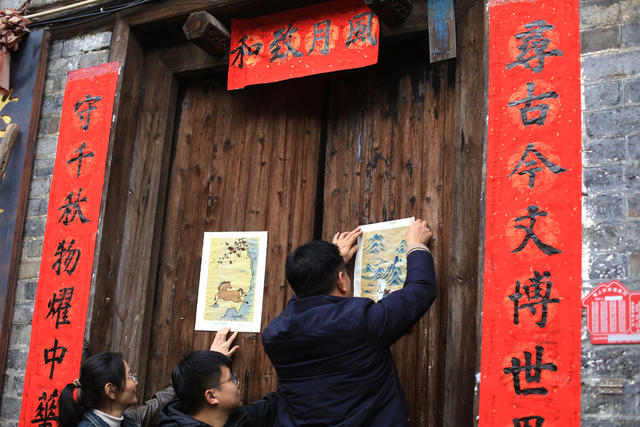 風月致和
尋古今文博世
守千秋物耀中華